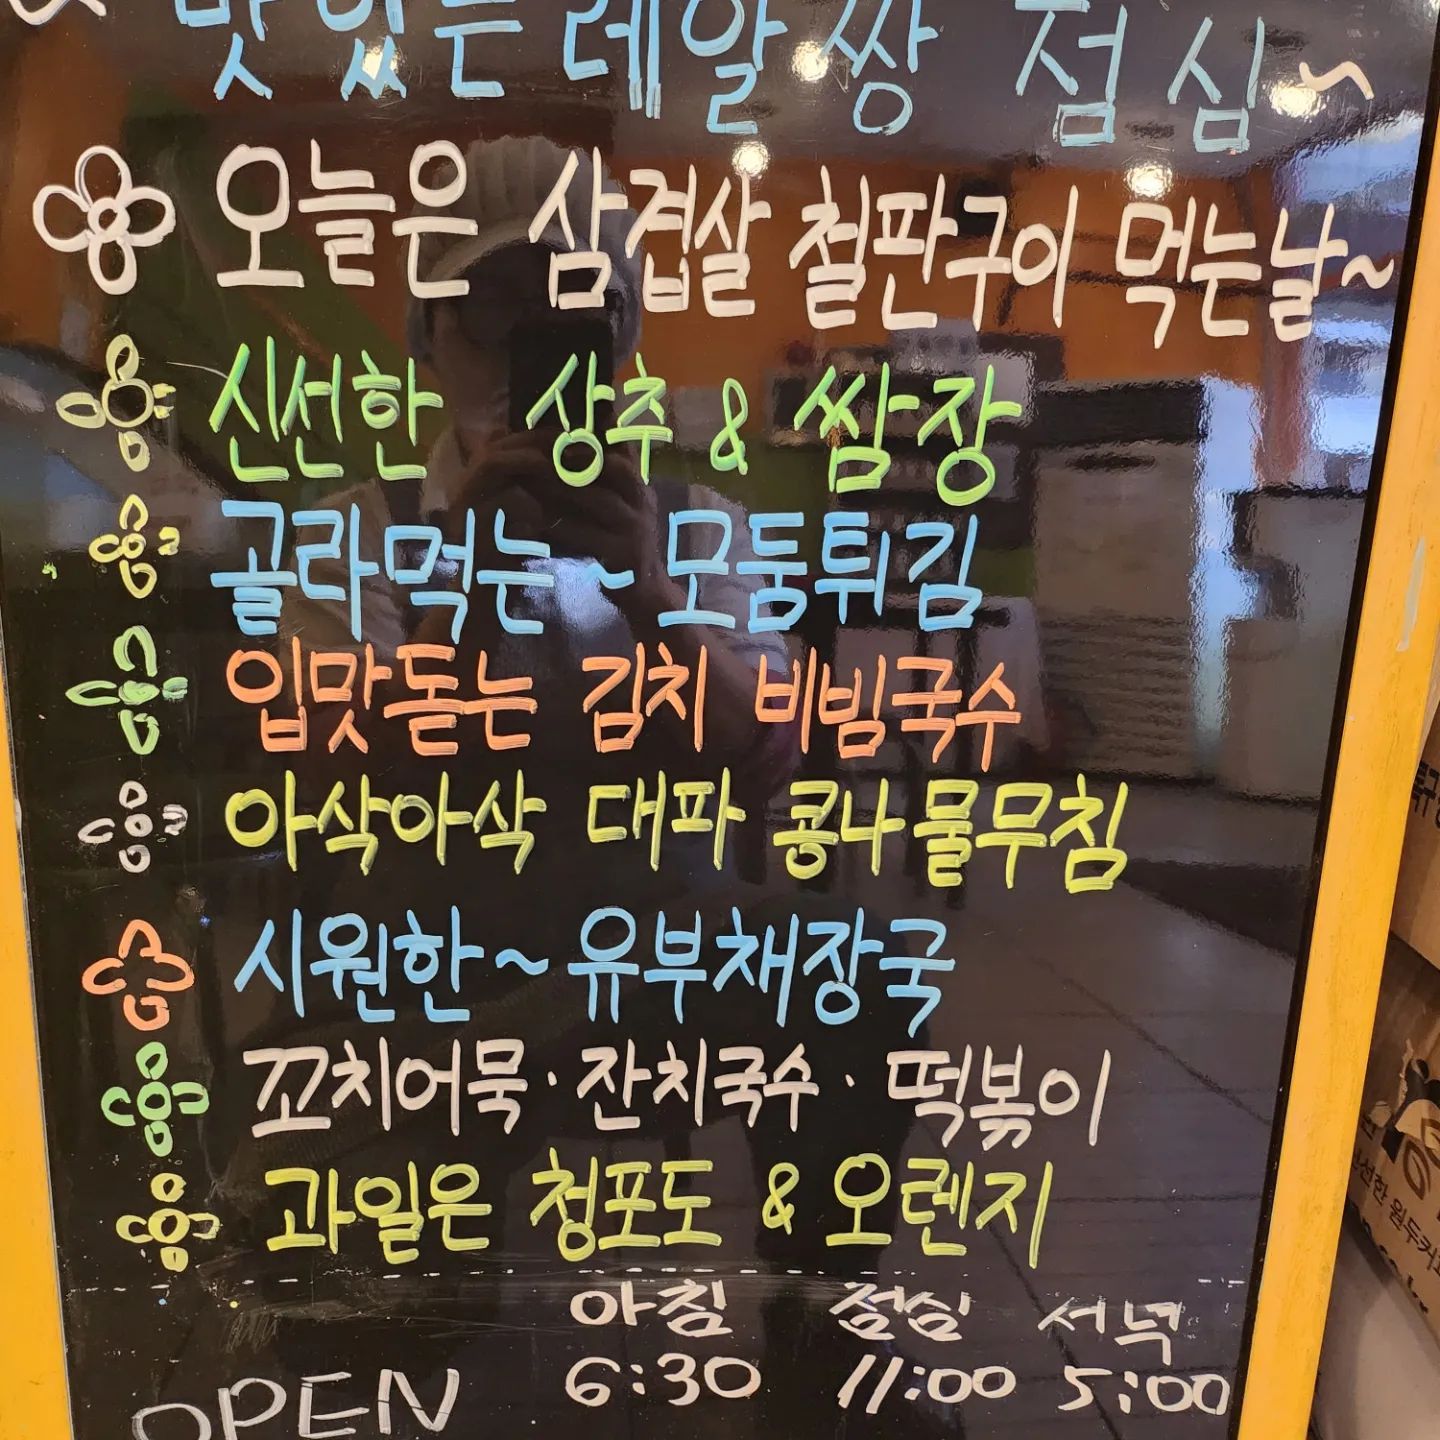 맛있는 레알짱 점심~
오늘은 삼겹살 철판구이 먹는날~
신선한 상추 & 쌈장
골라먹는~ 모둠튀김
입맛돋는 김치 비빔국수
아삭아삭 대파 콩나물무침
시원한~ 유부채장국
꼬치어묵·잔치국수·떡볶이
과일은 청포도 & 오렌지
아침 점심 저녁
OPEN 6:30 11:00 5:00
신선한 원두커